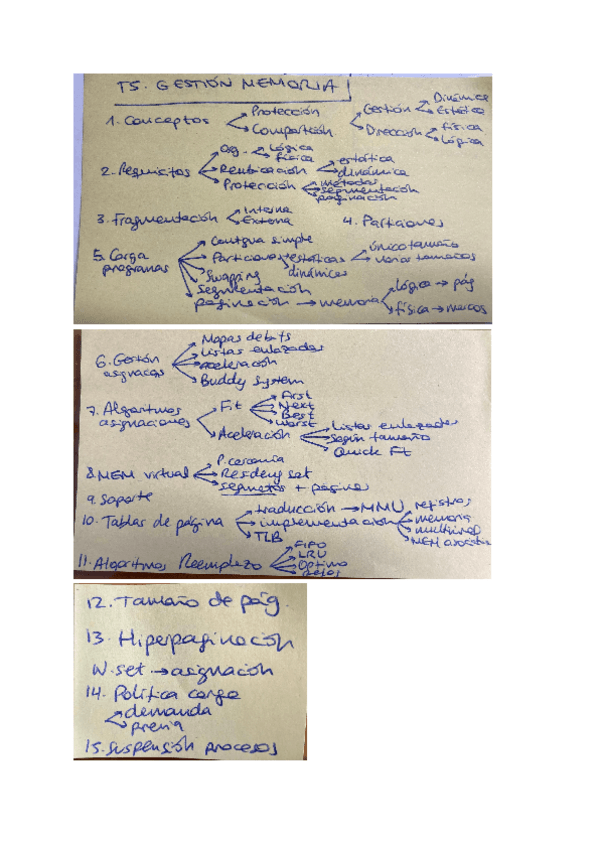 T5. GESTIÓN MEMORIA
1. Conceptos
Protección
Compartición
Gestión
Dinámica
Estática
Dirección
física
lógica
2. Requisitos
Org.
Lógica
física
Reubicación
estática
dinámica
Protección
métodos
segmentación
paginación
3. Fragmentación
Interna
Externa
4. Particiones
5. Carga programas
Contigua simple
Particiones
estáticas
dinámicas
único tamaño
varios tamaños
Swapping
Segmentación
paginación → memoria
lógica → pág
física → marcos
6. Gestión
asignacos
Mapas de bits
Listas enlazadas
aceleración
Buddy System
7. Algoritmos
asignaciones
Fit
First
Next
Best
Worst
Aceleración
Listas enlazadas
Según tamaño
Quick Fit
8. MEM virtual
P. cercanía
Resident set
segmetos + páginas
9. Soporte
10. Tablas de página
traducción → MMU
implementación
registros
memoria
multinivel
TLB
11. Algoritmos Reemplazo
FIFO
LRU
Óptimo
Reloj
12. Tamaño de pág.
13. Hiperpaginación
W. set → asignación
14. Política carga
demanda
previa
15. Suspensión procesos